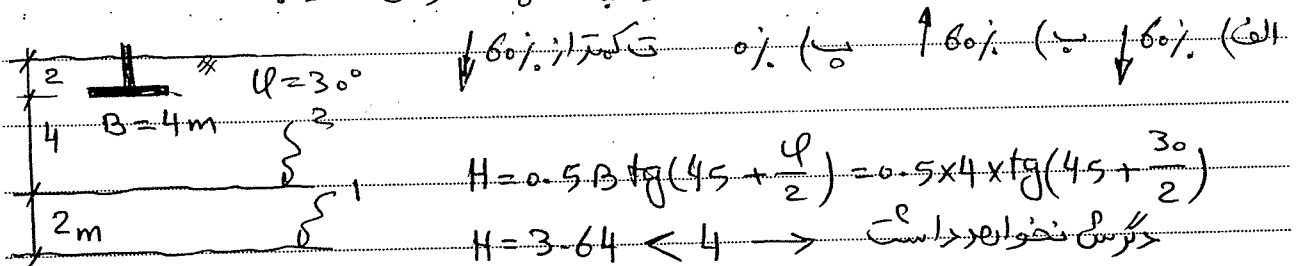 الف) 60٪ ↓ ب) 60٪ ↑ پ) 0٪ ت کمتر از 60٪ ↓
2
φ=30°
B=4m
4
2
H=0.5B tg(45+φ/2)=0.5×4×tg(45+30/2)
1
2m
H=3.64<4 → دگرش نخواهد داشت